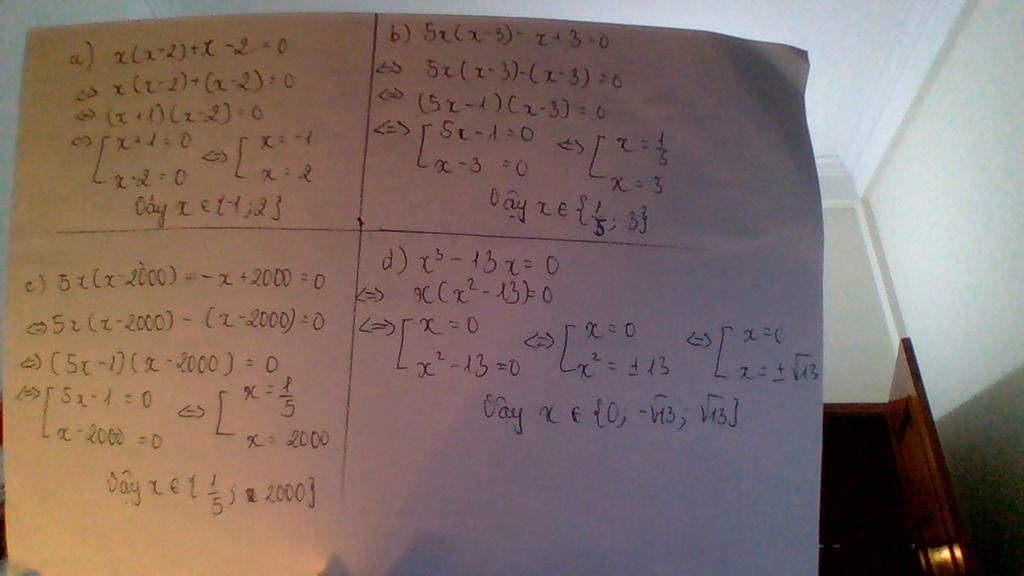 a) x(x-2)+x-2=0
⇔ x(x-2)+(x-2)=0
⇔ (x+1)(x-2)=0
⇔ [x+1=0 ⇔ [x=-1
x-2=0 x=2
Vậy x ∈ {-1;2}
b) 5x(x-3)-x+3=0
⇔ 5x(x-3)-(x-3)=0
⇔ (5x-1)(x-3)=0
⇔ [5x-1=0 ⇔ [x=1/5
x-3=0 x=3
Vậy x ∈ {1/5; 3}
c) 5x(x-2000)=-x+2000=0
⇔ 5x(x-2000)-(x-2000)=0
⇔ (5x-1)(x-2000)=0
⇔ [5x-1=0 ⇔ [x=1/5
x-2000=0 x=2000
Vậy x ∈ {1/5; 2000}
d) x³-13x=0
⇔ x(x²-13)=0
⇔ [x=0 ⇔ [x=0 ⇔ [x=0
x²-13=0 x²=±13 x=±√13
Vậy x ∈ {0, -√13; √13}